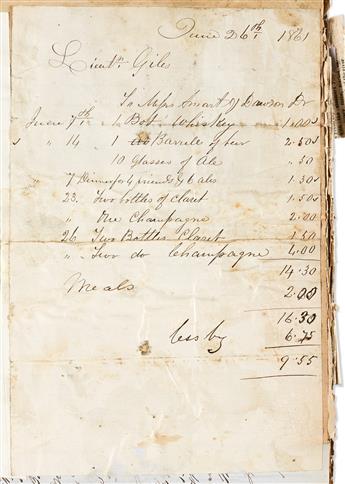 June 26th 1861
Lieutn Giles
To Messrs Smart & Dawson Dr
June 7th 1 Bott Whiskey 1.00
" 14 1 do Barrele of beer 2.50
10 Glasses of Ale " 50
" 7 Dinner for 4 friends & 6 ales 1.30
" 23. Two bottles of claret 1.50
" One Champagne 2.00
26 Two Bottles Claret 1.50
" Two do Champagne 4.00
14.30
Meals 2.00
16.30
less by 6.75
9.55